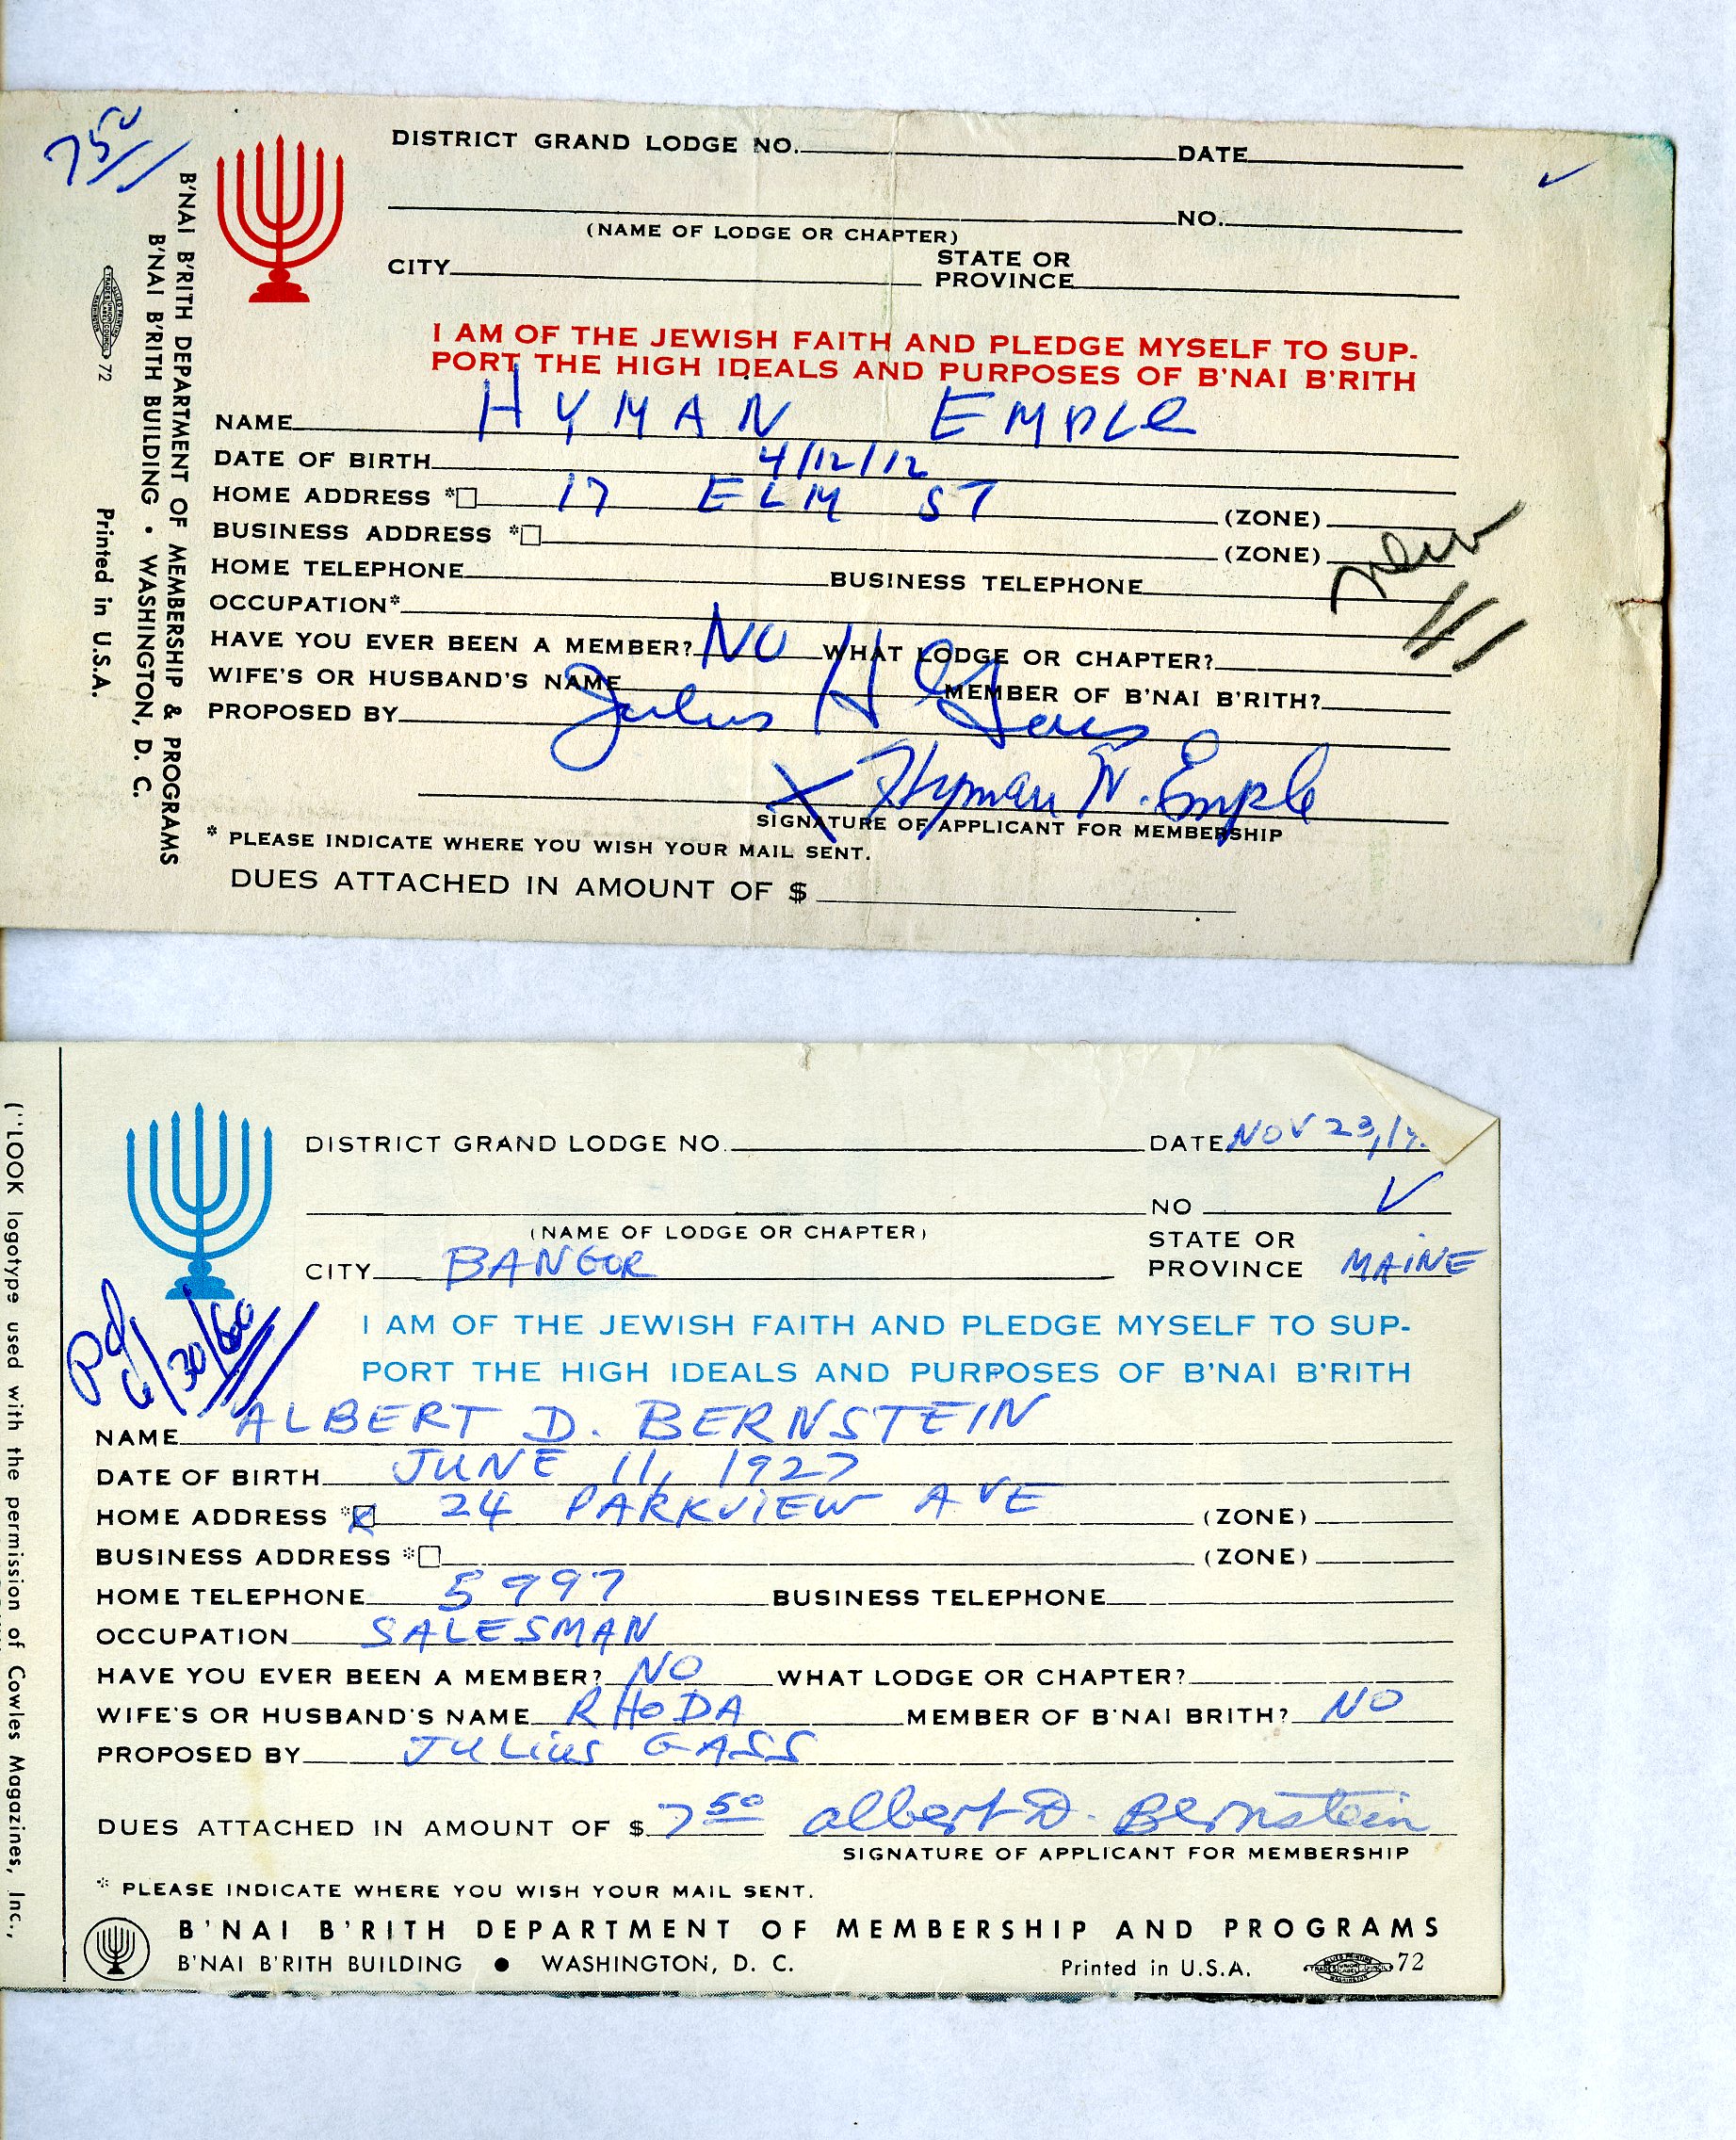 7 50
DISTRICT GRAND LODGE NO. DATE
NO.
(NAME OF LODGE OR CHAPTER)
CITY STATE OR PROVINCE
I AM OF THE JEWISH FAITH AND PLEDGE MYSELF TO SUP-
PORT THE HIGH IDEALS AND PURPOSES OF B'NAI B'RITH
NAME HYMAN EMPLE
DATE OF BIRTH 4/12/12
HOME ADDRESS * 17 ELM ST (ZONE)
BUSINESS ADDRESS * (ZONE)
New
HOME TELEPHONE BUSINESS TELEPHONE
OCCUPATION*
HAVE YOU EVER BEEN A MEMBER? NO WHAT LODGE OR CHAPTER?
WIFE'S OR HUSBAND'S NAME MEMBER OF B'NAI B'RITH?
PROPOSED BY Julius H Gass
X Hyman N. Emple
SIGNATURE OF APPLICANT FOR MEMBERSHIP
* PLEASE INDICATE WHERE YOU WISH YOUR MAIL SENT.
DUES ATTACHED IN AMOUNT OF $
B'NAI B'RITH DEPARTMENT OF MEMBERSHIP & PROGRAMS
B'NAI B'RITH BUILDING • WASHINGTON, D. C.
72 Printed in U.S.A.
DISTRICT GRAND LODGE NO. DATE NOV 23, 19
NO
(NAME OF LODGE OR CHAPTER)
CITY BANGOR STATE OR PROVINCE MAINE
Pd 6/30/60
I AM OF THE JEWISH FAITH AND PLEDGE MYSELF TO SUP-
PORT THE HIGH IDEALS AND PURPOSES OF B'NAI B'RITH
NAME ALBERT D. BERNSTEIN
DATE OF BIRTH JUNE 11, 1927
HOME ADDRESS * 24 PARKVIEW AVE (ZONE)
BUSINESS ADDRESS * (ZONE)
HOME TELEPHONE 5997 BUSINESS TELEPHONE
OCCUPATION SALESMAN
HAVE YOU EVER BEEN A MEMBER? NO WHAT LODGE OR CHAPTER?
WIFE'S OR HUSBAND'S NAME RHODA MEMBER OF B'NAI BRITH? NO
PROPOSED BY JULIUS GASS
DUES ATTACHED IN AMOUNT OF $ 7 50 Albert D. Bernstein
SIGNATURE OF APPLICANT FOR MEMBERSHIP
* PLEASE INDICATE WHERE YOU WISH YOUR MAIL SENT.
B'NAI B'RITH DEPARTMENT OF MEMBERSHIP AND PROGRAMS
B'NAI B'RITH BUILDING • WASHINGTON, D. C. Printed in U.S.A. 72
("LOOK logotype used with the permission of Cowles Magazines, Inc.,